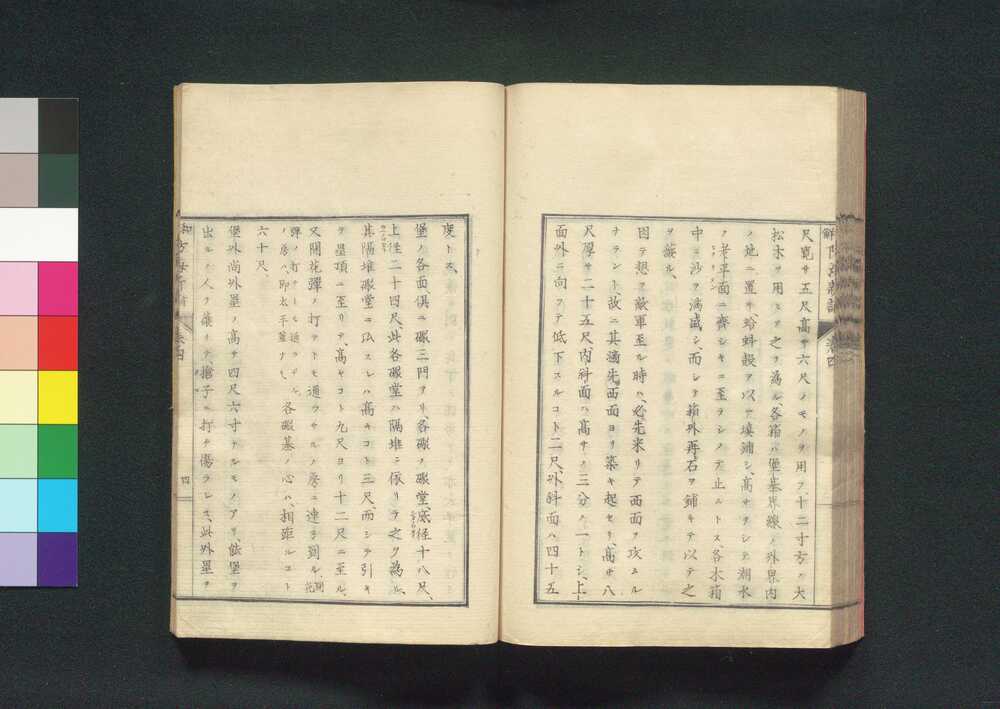 尺寛サ五尺高サ六尺ノモノヲ用フ、十二寸方ノ大
松木ヲ用ヒテ之ヲ為ル、各箱ハ堡基界線ノ外界内
ノ地ニ置キ、蛤蚌殻ヲ以テ填鋪シ、高サヲシテ潮水
ノ平面ニ齊シキニ至ラシメテ止ニトス各木箱
中ニ沙ヲ満盛シ、而シテ箱外再石ヲ鋪キテ以テ之
ヲ護ル、
因テ想フ敵軍至ル時ハ、必先来リテ西面ヲ攻ユル
ナラント故ニ其満先西面ヨリ築キ起セリ、高サ八
尺厚サ二十五尺、内斜面ハ高サノ三分ノ一トシ、上
面外ニ向フテ低下スルコト二尺、外斜面ハ四十五
度トス、
堡ノ各面、倶ニ礮三門アリ、各礮ノ礮堂、底径十八尺、
上径二十四尺、此各礮堂ハ隔堆ニ依リテ之ヲ為ル、
其隔堆礮堂ニ仏スレハ高キコト三尺、而シテ引キ
テ壘頂ニ至リテ、高ヤコト九尺ヨリ十二尺ニ至ル、
又開花彈ノ打テトモ通ラサルノ房ニ連ヲ到ル
各礮基ノ心ハ、相距ルコト
六十尺、
堡外尚外壘ノ高サ四尺六寸ナルモノアリ、能堡ヲ
出ル人ヲ護リテ、搶子ニ打チ傷ラレス、此外壘ヲ
四